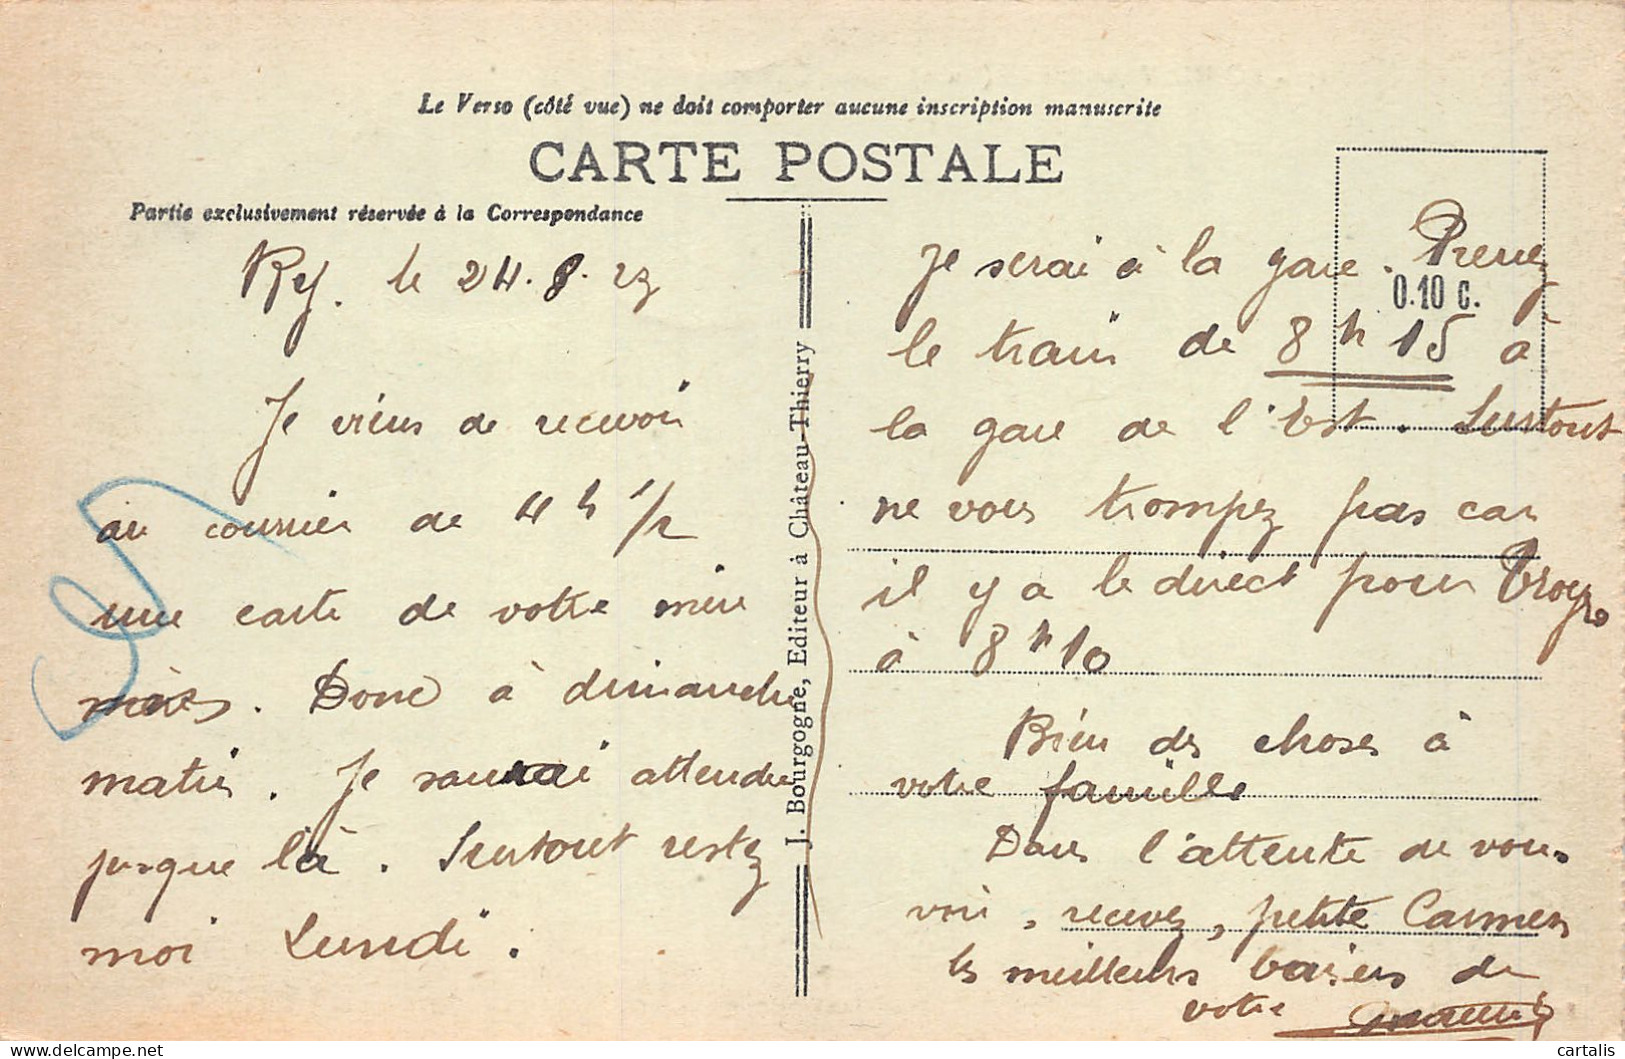 Le Verso (côté vue) ne doit comporter aucune inscription manuscrite
CARTE POSTALE
Partie exclusivement réservée à la Correspondance
le 24.8.23
Je viens de recevoir
au courrier de 4h 1/2
une carte de votre mère
. Donc à dimanche
matin. Je saurai attendre
jusque là. Surtout restez
moi Lundi.
J. Bourgogne, Editeur à Château-Thierry
Je serai à la gare. Prenez
0.10 c.
le train de 8h 15 à
la gare de l'Est. Surtout
ne vous trompez pas car
il y a le direct pour Troyes
à 8h10
Bien des choses à
votre famille
Dans l'attente de vous
voir, recevez, petite Carmen
les meilleurs baisers de
votre
cartalis
delcampe.net